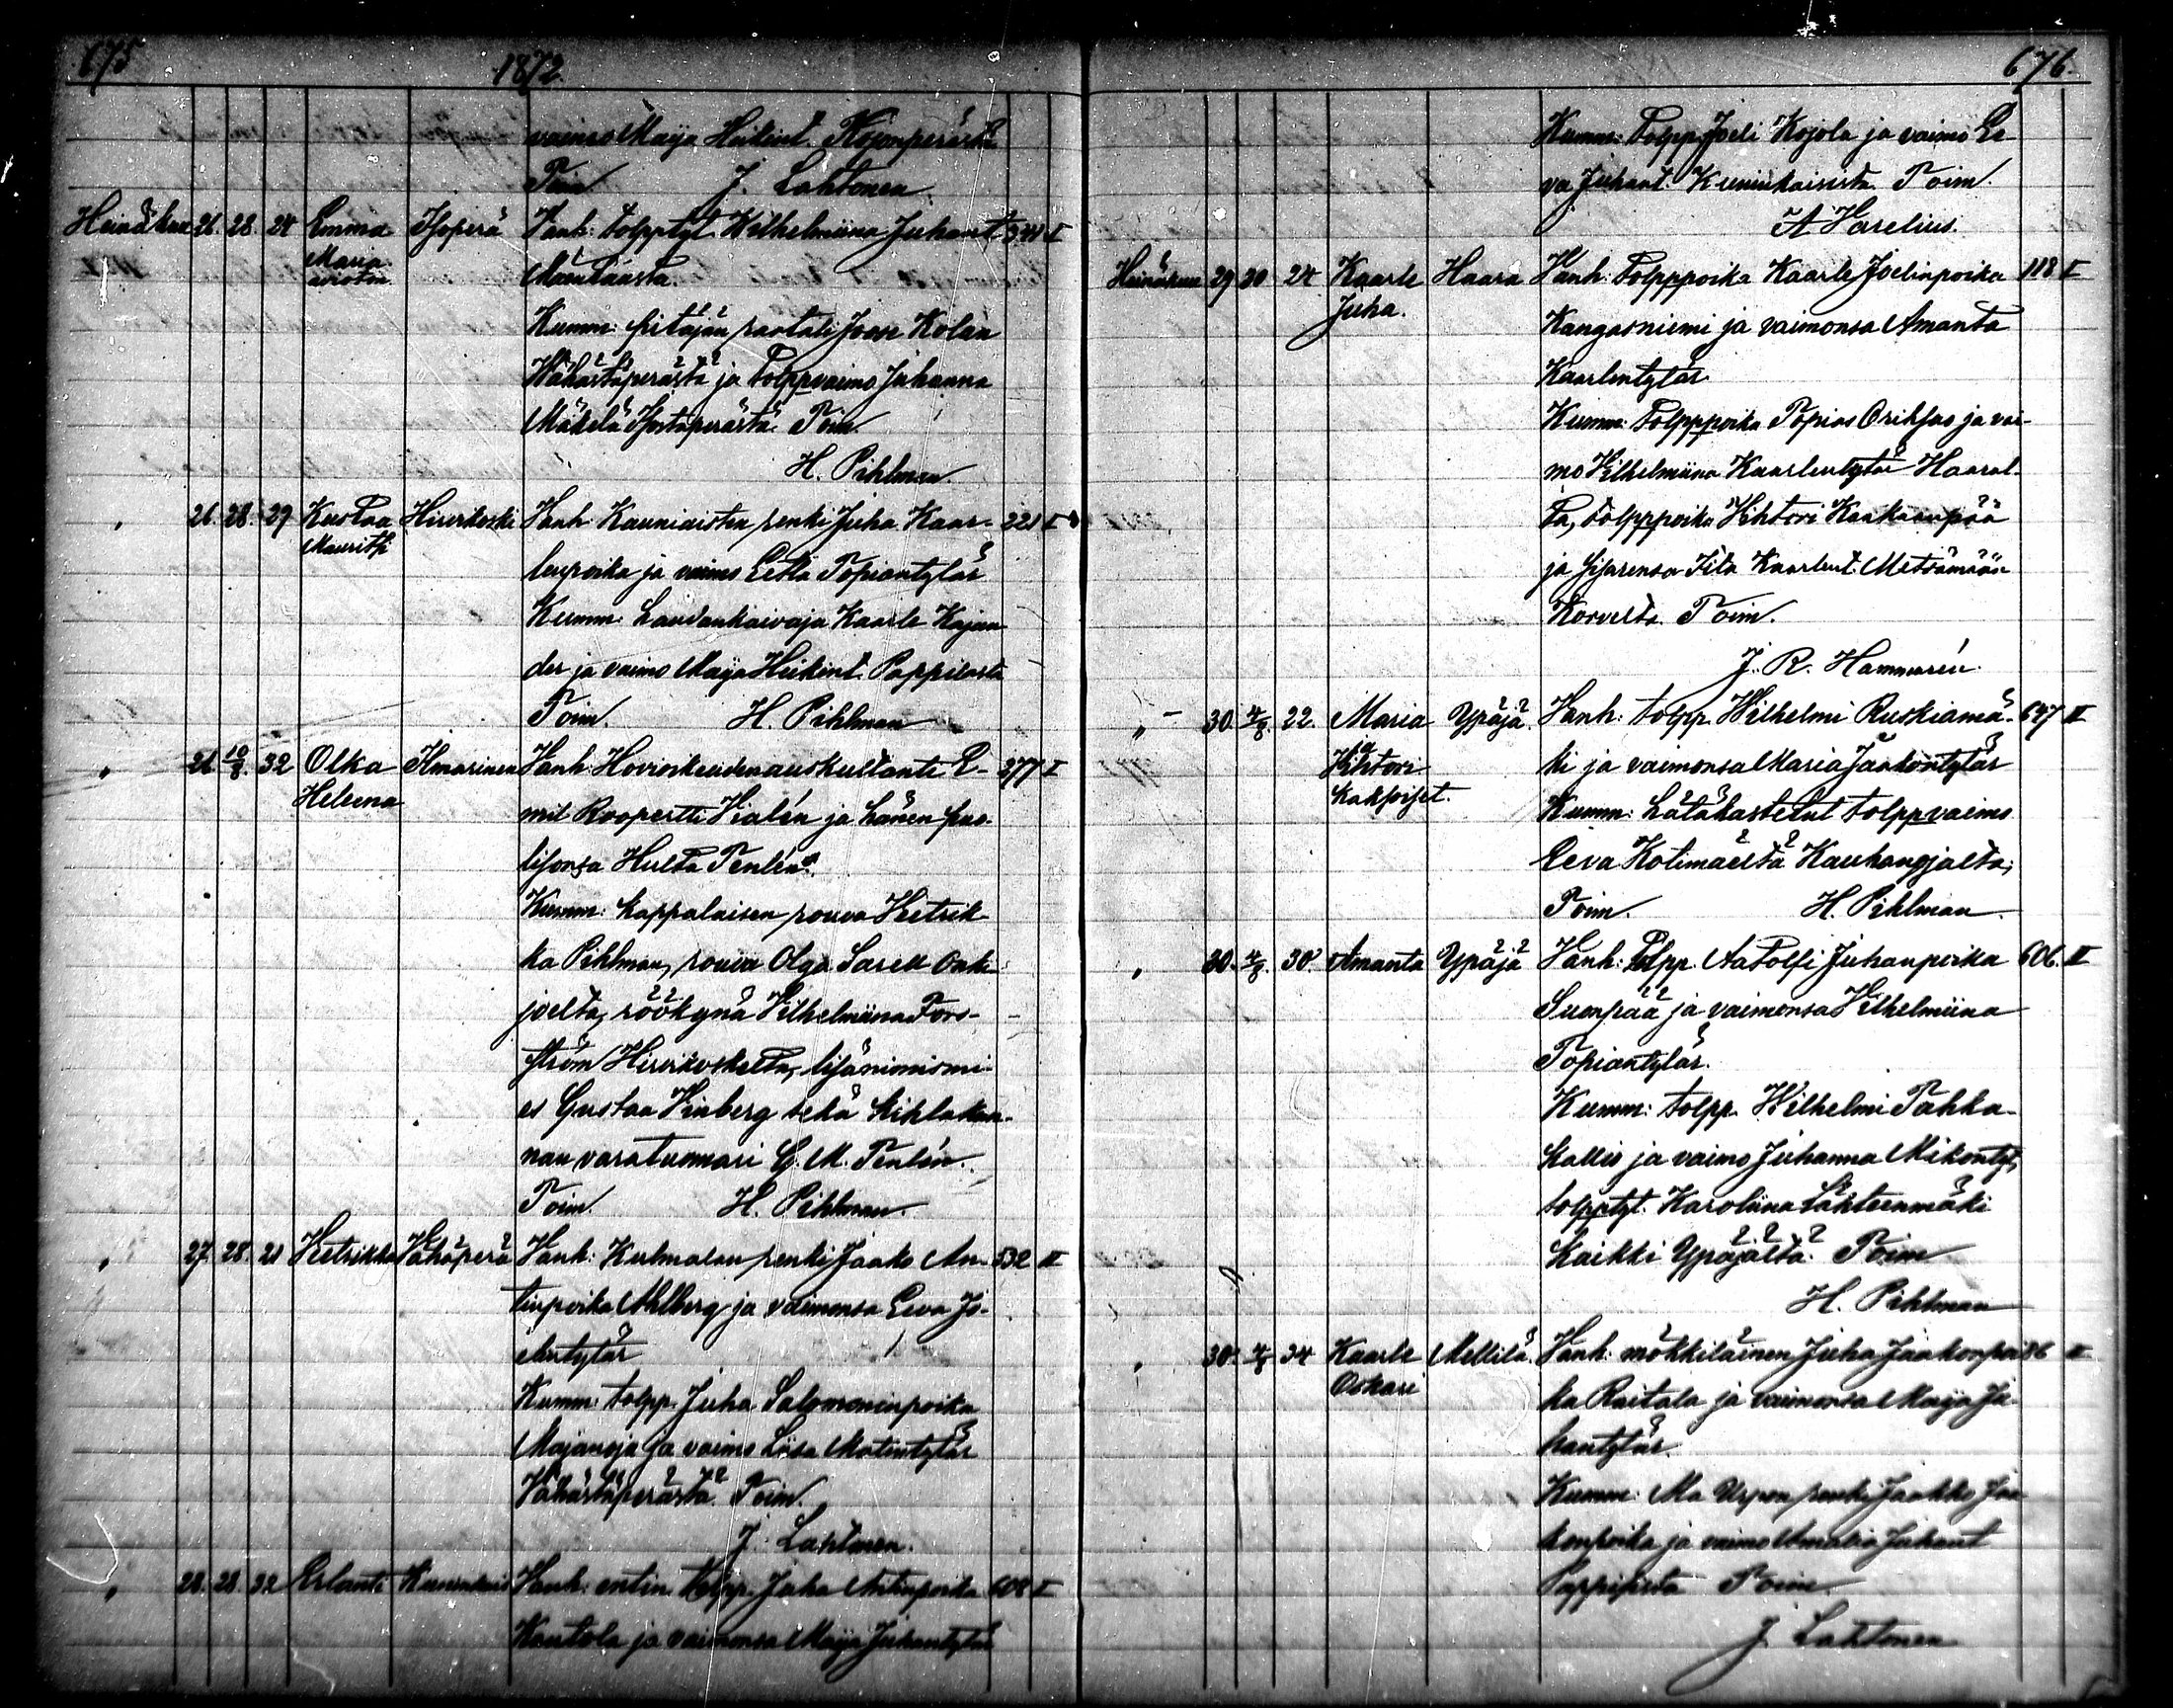 675 1872.
vaimo Maija Heikint. Kojonperästä
Toim J. Lahtonen.
Heinäkuu 26. 28. 24 Emma Isoperä Vanh: tolpptyt Wilhelmiina Juhant. 341 I
Maria
avioton
Kumm: pitäjän raatali Joose Kolan
Wähästäperästä ja tolppvaimo Juhanna
Mäkelä Isostaperästä. Toim.
H. Pihlman.
" 26. 28. 29 Kustaa Hirvikoski Vanh. Kauniaisten renki Juha Kaar- 221 I
Mauritsi
lenpoika ja vaimo Eetla Topiantytär
Kumm. haudankaivaja Kaarle Kajan
der ja vaimo Maija Heikint. Pappilasta
Toim. H. Pihlman
" 26. 10/8. 32 Olka Ilmarinen Vanh: Hovioikeuden auskultantti E- 277 I
Heleena
mil Roopertti Vialén ja hänen puo-
lisonsa Hulta Tenlén.
Kumm: kappalaisen rouva Hetrik-
ka Pihlman, rouva Olga Sarell Onki
joelta, röökynä Vilhelmiina Fors-
ström Hirvikoskelta, lisänimismi-
es Gustaa Vinberg sekä kihlakun-
nan varatuomari G. M. Tenlén.
Toim. H. Pihlman.
" 27. 28. 21 Hetrikka Vähäperä Vanh: Kulmalan renki Jaako An- 532 II
tinpoika Ahlberg ja vaimonsa Eeva Jo-
elintytär
Kumm: tolpp. Juha Salomoninpoika
Majanoja ja vaimo Liisa Matintytär
Vähästäperästä. Toim.
J. Lahtonen.
" 28. 28. 32 Erlanti Vanh: entin. tolpp. Juha Antinpoika 608 I
Kantola ja vaimonsa Maija Juhantytär
676.
Kumm: Tolpp. Joeli Kojola ja vaimo Ee
va Juhant. Kuninkaisista. Toim.
A Harelius.
Heinäkuu 29 30 24 Kaarle Haara Vanh: Tolpppoika Kaarle Joelinpoika 118 I
Juha.
Kangasniemi ja vaimonsa Amanta
Kaarlentytär
Kumm: Tolpppoika Topias Orihsas ja vai-
mo Vilhelmiina Kaarlentytär Haaral-
ta, tolpppoika Vihtori Kaukaanpää
ja sisarensa Iita Kaarlent. Metsämään
Korvelta. Toim.
J. R. Hammarén.
" 30. 4/8. 22. Maria Ypäjä. Vanh: tolpp Wilhelmi Ruskiamä- 647 II
ja
Vihtori
kaksoiset.
ki ja vaimonsa Maria Jaakontytär
Kumm: hätäkastetut tolppvaimo
Eeva Kotimäeltä Kauhanojalta;
Toim. H. Pihlman.
" 30. 4/8. 30 Amanta Ypäjä Vanh: Tolpp. Aatolfi Juhanpoika 606. II
Suonpää ja vaimonsa Vilhelmiina
Topiantytär.
Kumm: tolpp. Wilhelmi Tahka-
kallio ja vaimo Juhanna Mikontyt,
tolpptyt. Karoliina Lähteenmäki
kaikki Ypäjältä. Toim
H. Pihlman
" 30. 4/8 34 Kaarle Mellilä Vanh: mökkiläinen Juha Jaakonpoi 86 II
Oskari
ka Raitala ja vaimonsa Maija Ja-
kantytär.
Kumm: Ma Urpon renki Jaakko Jaa
konpoika ja vaimo Amalia Juhant
Toim
J. Lahtonen